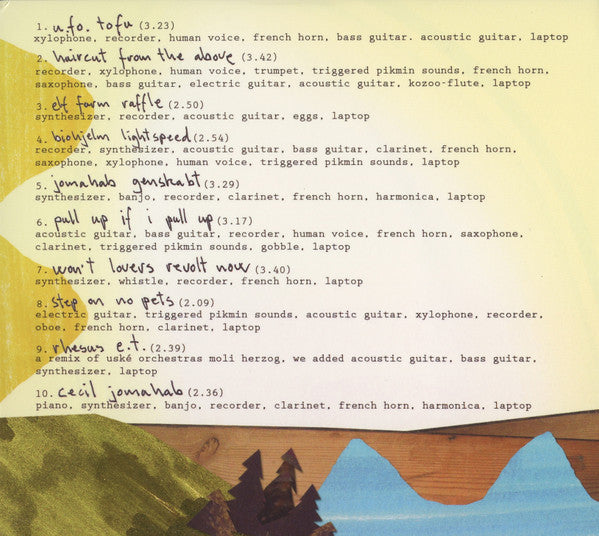 1. u.f.o. tofu (3.23)
xylophone, recorder, human voice, french horn, bass guitar. acoustic guitar, laptop
2. haircut from the above (3.42)
recorder, xylophone, human voice, trumpet, triggered pikmin sounds, french horn,
saxophone, bass guitar, electric guitar, acoustic guitar, kozoo-flute, laptop
3. elf farm raffle (2.50)
synthesizer, recorder, acoustic guitar, eggs, laptop
4. biohjelm lightspeed (2.54)
recorder, synthesizer, acoustic guitar, bass guitar, clarinet, french horn,
saxophone, xylophone, human voice, triggered pikmin sounds, laptop
5. jomahab genskabt (3.29)
synthesizer, banjo, recorder, clarinet, french horn, harmonica, laptop
6. pull up if i pull up (3.17)
acoustic guitar, bass guitar, recorder, human voice, french horn, saxophone,
clarinet, triggered pikmin sounds, gobble, laptop
7. won't lovers revolt now (3.40)
synthesizer, whistle, recorder, french horn, laptop
8. step on no pets (2.09)
electric guitar, triggered pikmin sounds, acoustic guitar, xylophone, recorder,
oboe, french horn, clarinet, laptop
9. rhesus e.t. (2.39)
a remix of uské orchestras moli herzog, we added acoustic guitar, bass guitar,
synthesizer, laptop
10. cecil jomahab (2.36)
piano, synthesizer, banjo, recorder, clarinet, french horn, harmonica, laptop